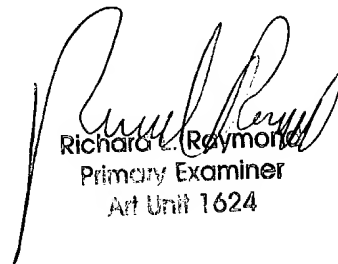 Richard L. Raymond
Primary Examiner
Art Unit 1624